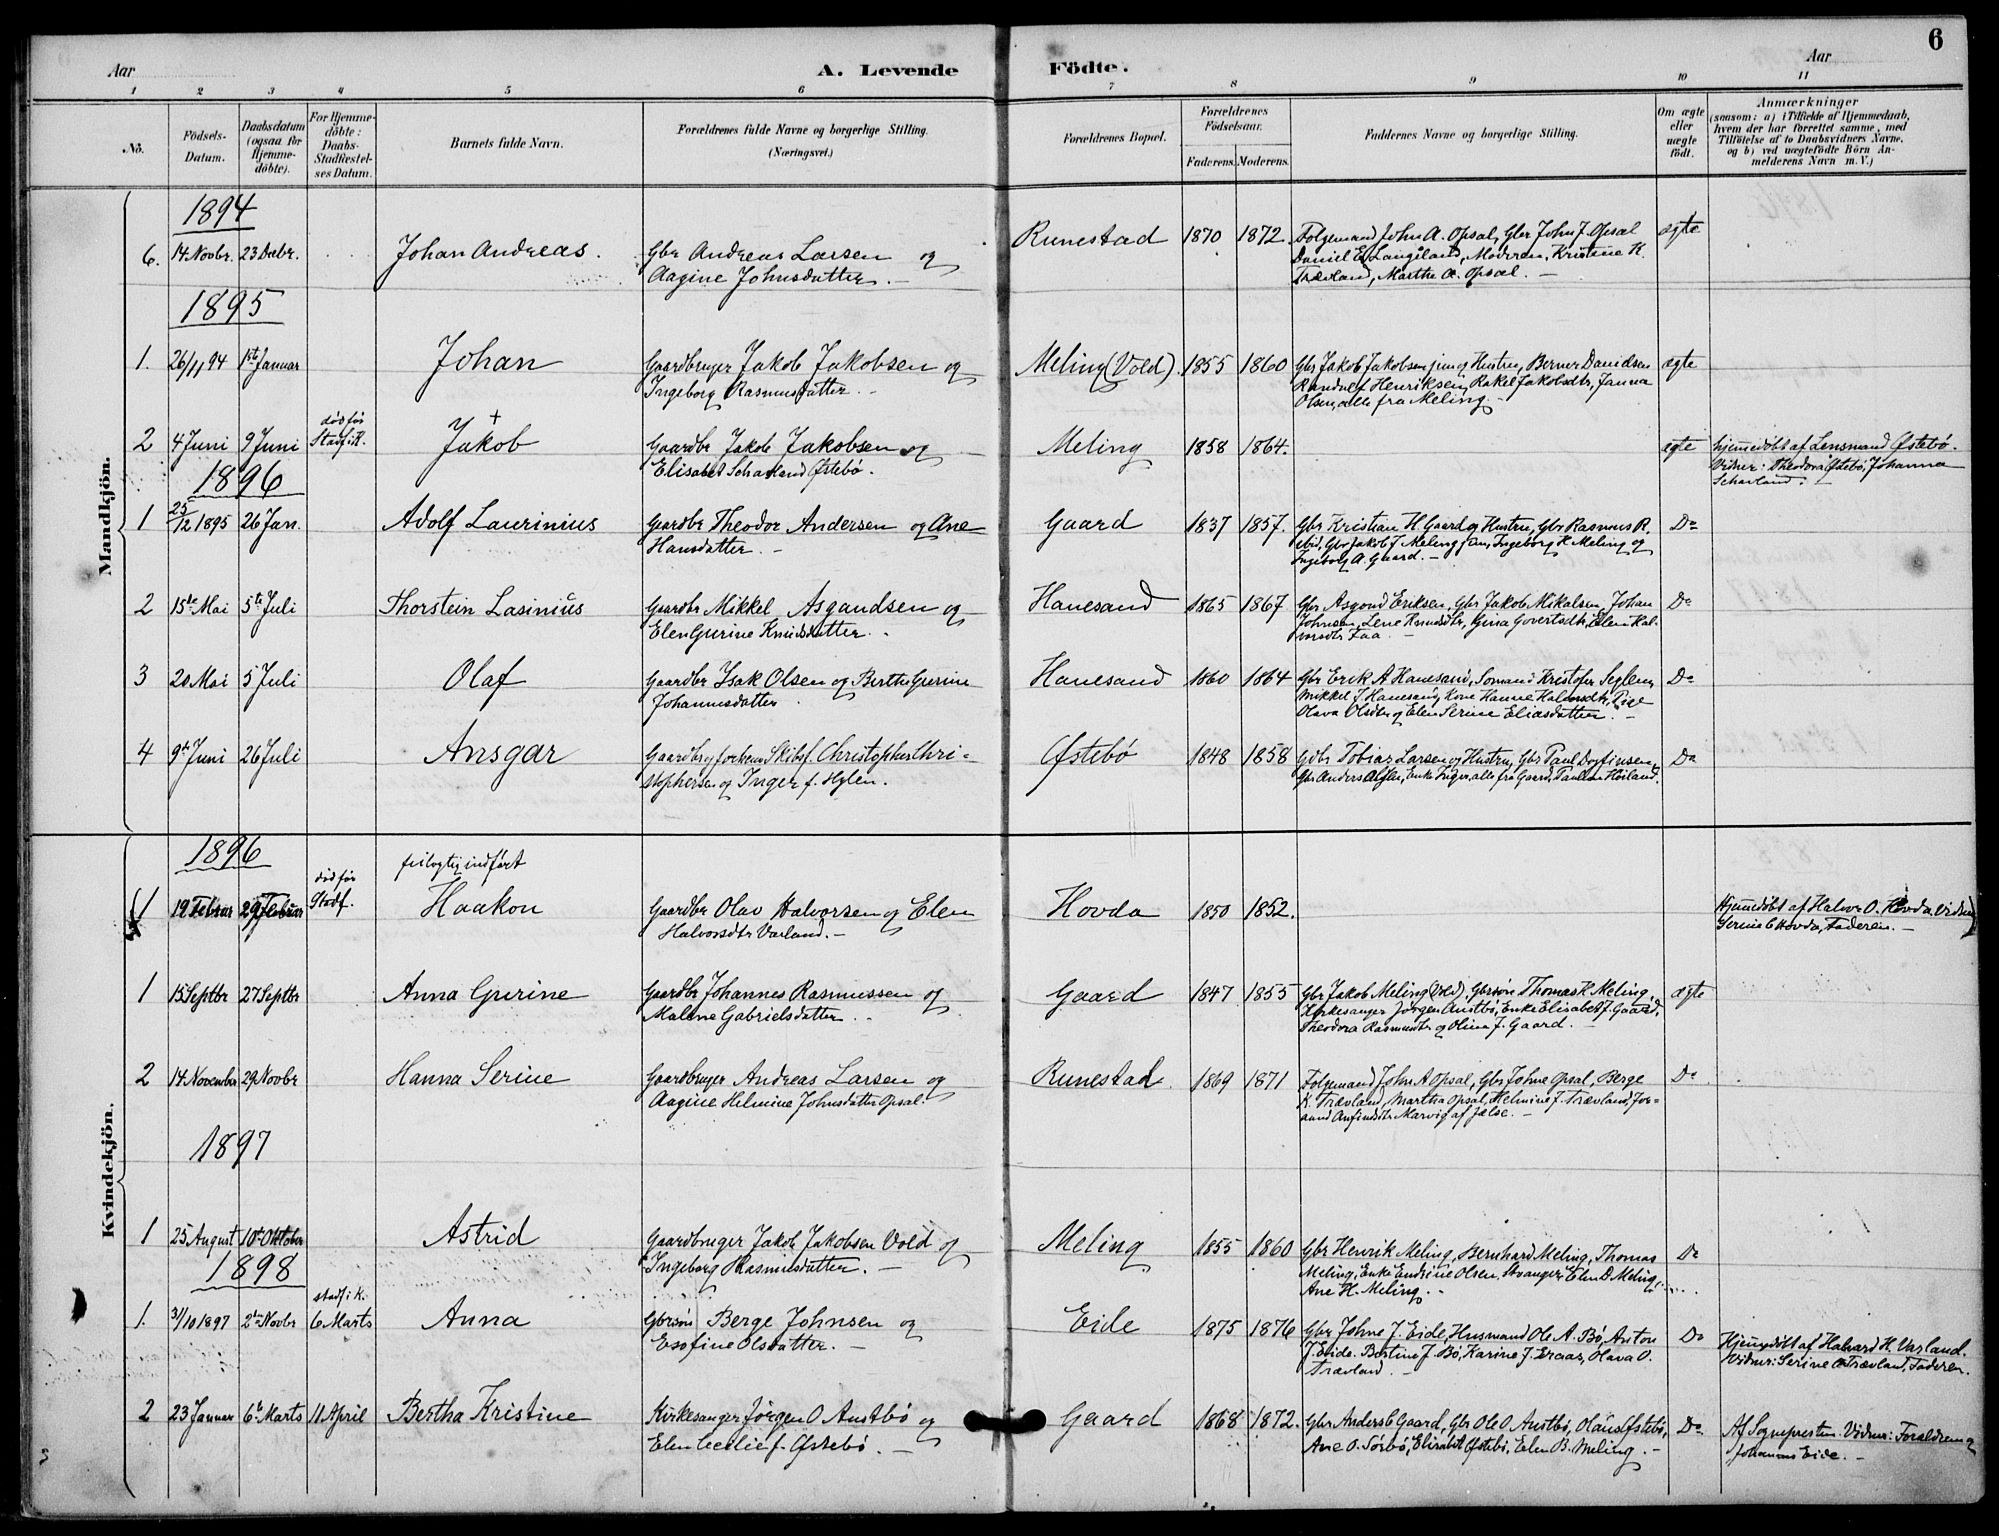 6
Aar
A. Levende Födte.
Aar
1 2 3 4 5 6 7 8 9 10 11
No.
Födsels-Datum.
Daabsdatum (ogsaa for Hjemmedöbte).
For Hjemmedöbte: Daabs-Stadfæstelses Datum.
Barnets fulde Navn.
Forældrenes fulde Navne og borgerlige Stilling.
(Næringsvei.)
Forældrenes Bopæl.
Forældrenes Födselsaar.
Faderens. Moderens.
Faddernes Navne og borgerlige Stilling.
Om ægte eller uægte födt.
Anmærkninger
(saasom: a) i Tilfælde af Hjemmedaab,
hvem der har forrettet samme, med
Tilföielse af to Daabsvidners Navne,
og b) ved uægtefödte Börn An-
melderens Navn m. V.)
Mandkjön.
1894
6. 14 Novbr. 23 Decbr. Johan Andreas. Gbr Andreas Larsen og Runestad 1870 1872 Folgemand John A. Opsal, Gbr John J. Opsal ægte
Aagine Johnsdatter. Daniel E. Langåland, Moderen, Kristine K.
Trævland, Marthe A. Opsal.
1895
1. 26/11 94 1ste Januar Johan Gaardbruger Jakob Jakobsen og Meling (Vold). 1855 1860 Gbr Jakob Jakobsen jun og Hustru, Berner Danielsen ægte
Ingeborg Rasmusdatter. Randulf Henriksen, Rakel Jakobsdtr, Janna
Olsen, alle fra Meling.
død før
2 4 Juni 9 Juni Stadf i K. Jakob Gaardbr Jakob Jakobsen og Meling 1858 1864. ægte hjemedøbt af Lensmand Østebø.
Elisabet Scharland Østebø. Vidner: Theodora Østebø, Johanna
Scharland.
1896
1 25/12 1895 26 Jan. Adolf Laurinius Gaardbr Theodor Andersen og Ane Gaard 1837 1857. Gbr Kristian H. Gaard og Hustru, Gbr Rasmus R. Do
Hansdatter. ibid, Gbr Jakob J Meling jun, Ingeborg K Meling og
Ingeborg A. Gaard.
2 15de Mai 5te Juli Thorstein Lasinius Gaardbr Mikkel Asgaudsen og Hanesand 1865 1867 Gbr Asgond Eriksen, Gbr Jakob Mikalsen, Johan Do
Elen Gurine Knudsdatter. Johnsen, Lene Knudsdtr, Gina Govertsdtr, Elen Hal-
vorsdtr Faa.
3 20 Mai 5 Juli Olaf Gaardbr Isak Olsen og Berthe Gurine Hanesand 1860 1864 Gbr Erik A Hanesand, Sømand Kristofer Seglem, Do
Johannesdatter Mikkel J Hanesand, Kone Hanne Halvorsdtr, Pige
Olava Olsdtr og Elen Serine Eliasdatter.
4 9de Juni 26 Juli Ansgar Gaardbr og forhenv Skibsf. Christopher Chri- Østebø 1848 1858 Gdbr Tobias Larsen og Hustru, Gbr Paul Dagfinsen, Do
stophersen og Inger f. Hylen. Gbr Anders, Enke Inger, alle fra Gaard,
Kvindekjön.
1896
død før feilagtig indført
1 19 Februar 29 Februar Stadf. Haakon Gaardbr Olav Halvorsen og Elen Hovda 1850 1852. Hjemedøbt af Halvor O. Hovda. Vidner
Halvorsdtr Varland. Serine C Hovda, Faderen.
1 15 Septbr 27 Septbr Anna Gurine Gaardbr Johannes Rasmussen og Gaard 1847 1855 Gbr Jakob Meling (Vold), Gbrsøn Thomas K Meling, ægte
Malene Gabrielsdatter. Kirkesanger Jørgen Austbø, Enke Elisabet J. Gaard,
Theodora Rasmusdtr og Oline J. Gaard.
2 14 November 29 Novbr Hanna Serine Gaardbruger Andreas Larsen og Runestad 1869 1871 Folgemand John A Opsal, Gbr Johne Opsal, Berge Do
Aagine Helmine Johnsdatter Opsal. K. Trævland, Martha Opsal, Helmine J. Trævland, Jor-
Anfindsdtr Marvig af Jælse.
1897
1 25 August 10de Oktober Astrid Gaardbruger Jakob Jakobsen Vold og Meling 1855 1860 Gbr Henrik Meling, Bernhard Meling, Thomas Do
Ingeborg Rasmusdatter. Meling, Enke Endrine Olsen, Stavanger, Elen D. Meling,
Ane H. Meling.
1898
stadf i K.
1. 31/10 1897 2den Novbr 6 Marts Anna Gbrsøn Berge Johnsen og Eide 1875 1876 Gbr Johne J. Eide, Husmand Ole A. Bø, Anton Do Hjemedøbt af Halvard H. Varland.
Esofine Olsdatter. J. Eide. Bertine J. Bø, Karine J. Eraas, Olava O. Vidner: Serine O Trævland, Faderen.
Trævland.
2 23 Januar 6te Marts 11 April Bertha Kristine Kirkesanger Jørgen O Austbø og Gaard 1868 1872. Gbr Anders C Gaard, Gbr Ole O Austbø, Olaus Østebø, Do Af Sognepresten. Vidner: Forældrene og
Elen Cecilie f. Østebø. Ane O. Sørbø, Elisabet Østebø, Elen B. Meling. Johannes Eide.